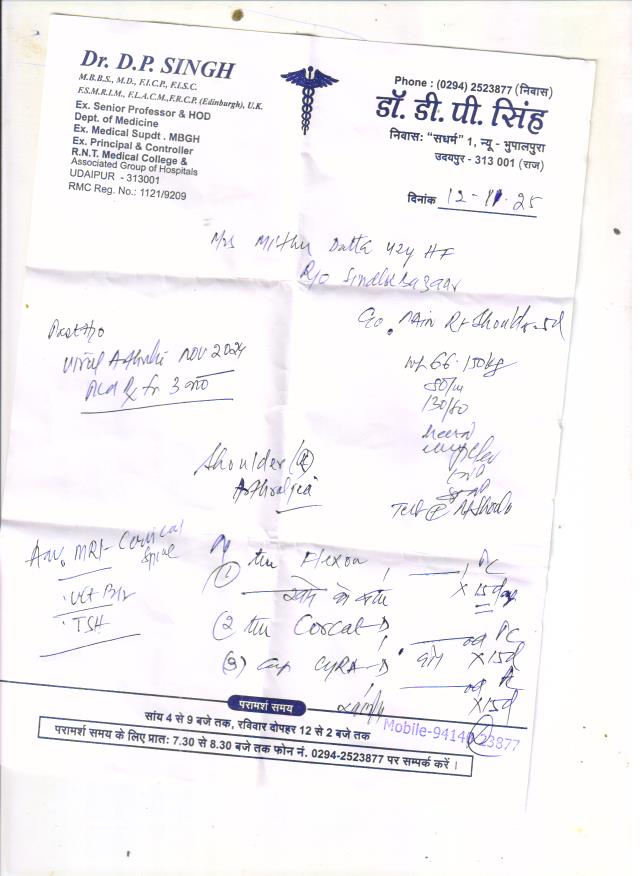 Dr. D.P. SINGH
M.B.B.S., M.D., F.I.C.P., F.I.S.C.
F.S.M.R.I.M., F.L.A.C.M.,F.R.C.P. (Edinburgh), U.K.
Ex. Senior Professor & HOD
Dept. of Medicine
Ex. Medical Supdt . MBGH
Ex. Principal & Controller
R.N.T. Medical College &
Associated Group of Hospitals
UDAIPUR - 313001
RMC Reg. No.: 1121/9209
Phone : (0294) 2523877 (निवास)
डॉ. डी. पी. सिंह
निवास: "सधर्म" 1, न्यू - भुपालपुरा
उदयपुर - 313 001 (राज)
दिनांक 12-11-25
Mrs Mithu Datta 42y HF
R/o
C/o. Pain Rt Shoulder 5d
Past H/o
Viral Arthritis NOV 2024
Rx for 3 mo
Wt 66.150kg
80/m
130/80
Shoulder (R)
Arthralgia
Rt Shoulder
Adv. MRI- Cervical
Spine
. Vit B12
. TSH
(1) Flexon 1 1 PC
खाने के बाद X 15 days
(2) Corcal-D 1 od PC
X 15d
(3) Cap CYRA-D 1 od
X15d
परामर्श समय
सांय 4 से 9 बजे तक, रविवार दोपहर 12 से 2 बजे तक
Mobile-94140 23877
परामर्श समय के लिए प्रातः 7.30 से 8.30 बजे तक फोन नं. 0294-2523877 पर सम्पर्क करें ।